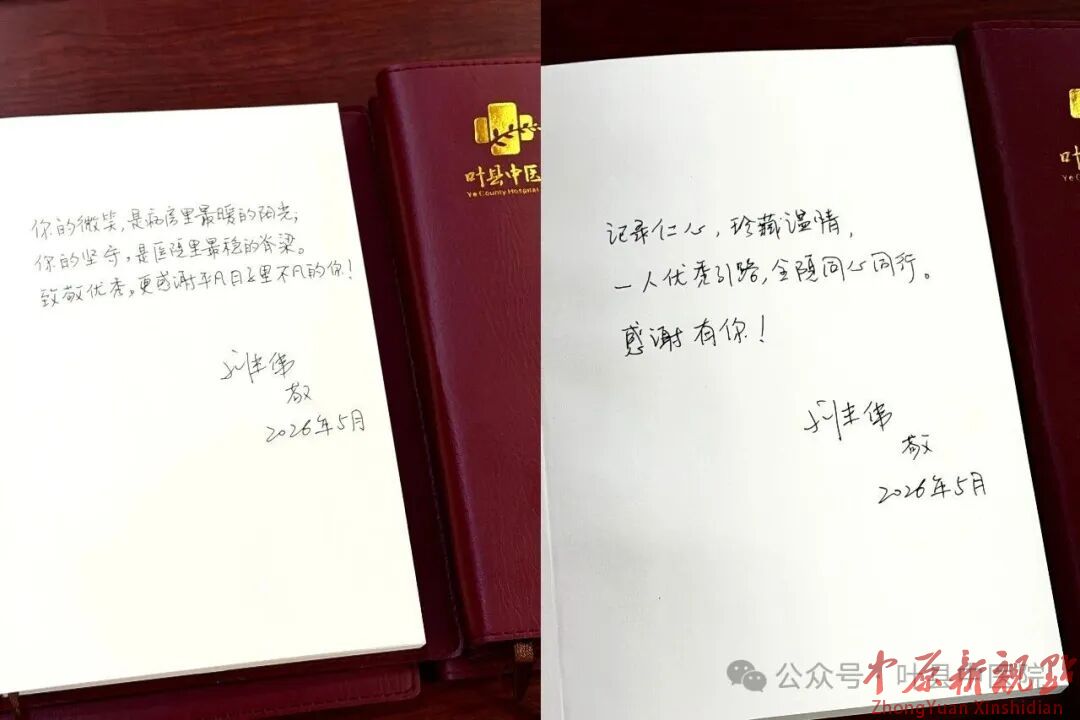 你的微笑,是病房里最暖的阳光;
你的坚守,是医院里最稳的脊梁。
致敬优秀,更感谢平凡日子里不凡的你!
敬
2026年5月
叶县中医
Ye County Hospital
记录仁心,珍藏温情,
一人优秀引路,全院同心同行。
感谢有你!
敬
2026年5月
叶
Ye
公众号 叶县中医院
中原新视野
ZhongYuan Xinshidian